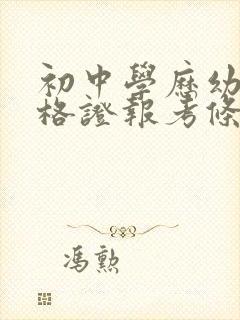 初中學歷幼
格證報考條
馮勲